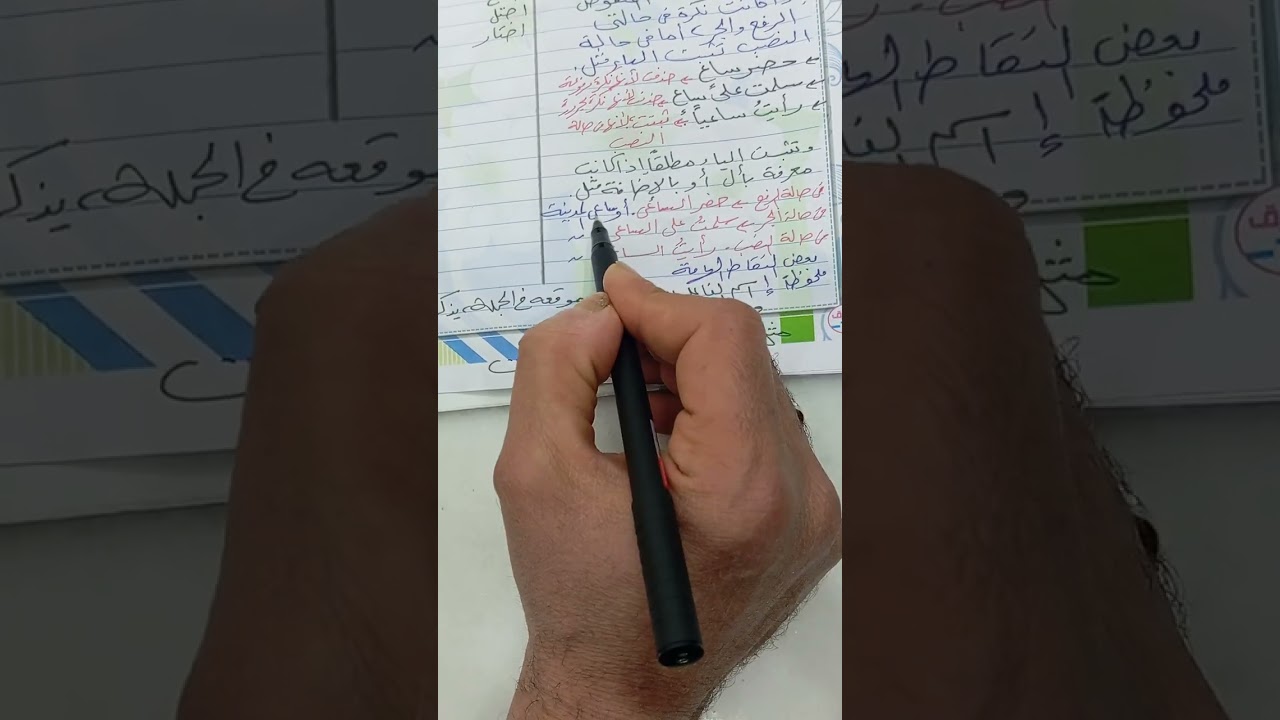 اختل
اختار
كانت نكرة في حالتي
الرفع والجر، أما في حالة
النصب تثبت الياء مثل:
حضر ساعٍ ← حذفت لأنها نكرة مرفوعة
سلمت على ساعٍ ← حذفت لأنها نكرة مجرورة
رأيتُ ساعياً ← ثبتت لأنها في حالة
النصب
وتثبت الياء مطلقاً إذا كانت
معرفة بأل أو بالإضافة مثل:
في حالة الرفع ← حضر الساعي. أو ساعي المدينة
في حالة الجر ← سلمت على الساعي
في حالة النصب ← رأيتُ الساعي
بعض النقاط الهامة
ملحوظة إسم موقعه في الجملة، يذكر
بعض النقاط
ملحوظة إسم
موقعه في الجملة، يذكر